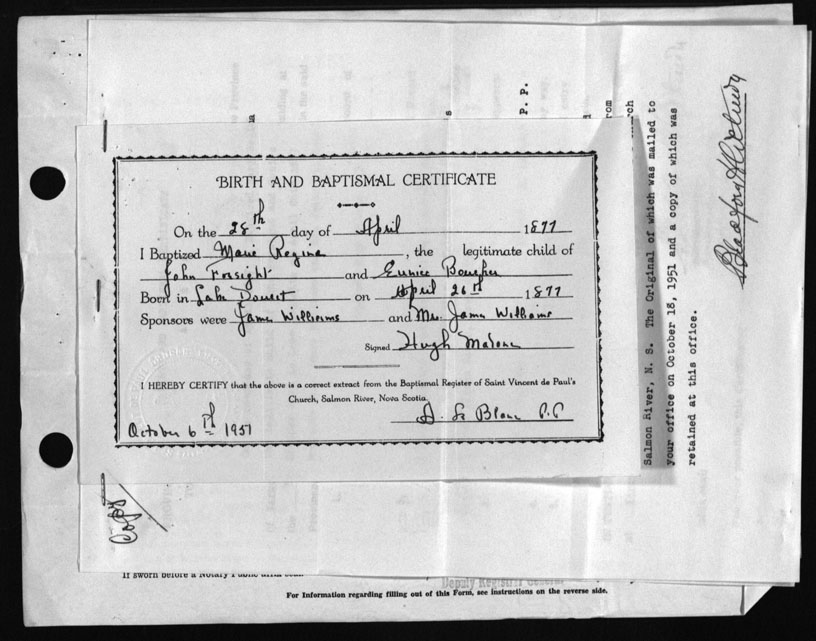 BIRTH AND BAPTISMAL CERTIFICATE
On the 28th day of April 1877
I Baptized Marie Regina, the legitimate child of
John Forsight and Eunice Bougher
Born in Lake Doucet on April 26th 1877
Sponsors were James Williams and Mrs. James Williams
Signed Hugh Malone
I HEREBY CERTIFY that the above is a correct extract from the Baptismal Register of Saint Vincent de Paul's
Church, Salmon River, Nova Scotia.
October 6th 1951 D. Le Blanc P.P.
Copy
P. P.
rom
rch
Salmon River, N. S. The Original of which was mailed to
your office on October 18, 1951 and a copy of which was
retained at this office.
If sworn before a Notary Public affix seal.
Deputy Registrar General
For Information regarding filling out of this Form, see instructions on the reverse side.